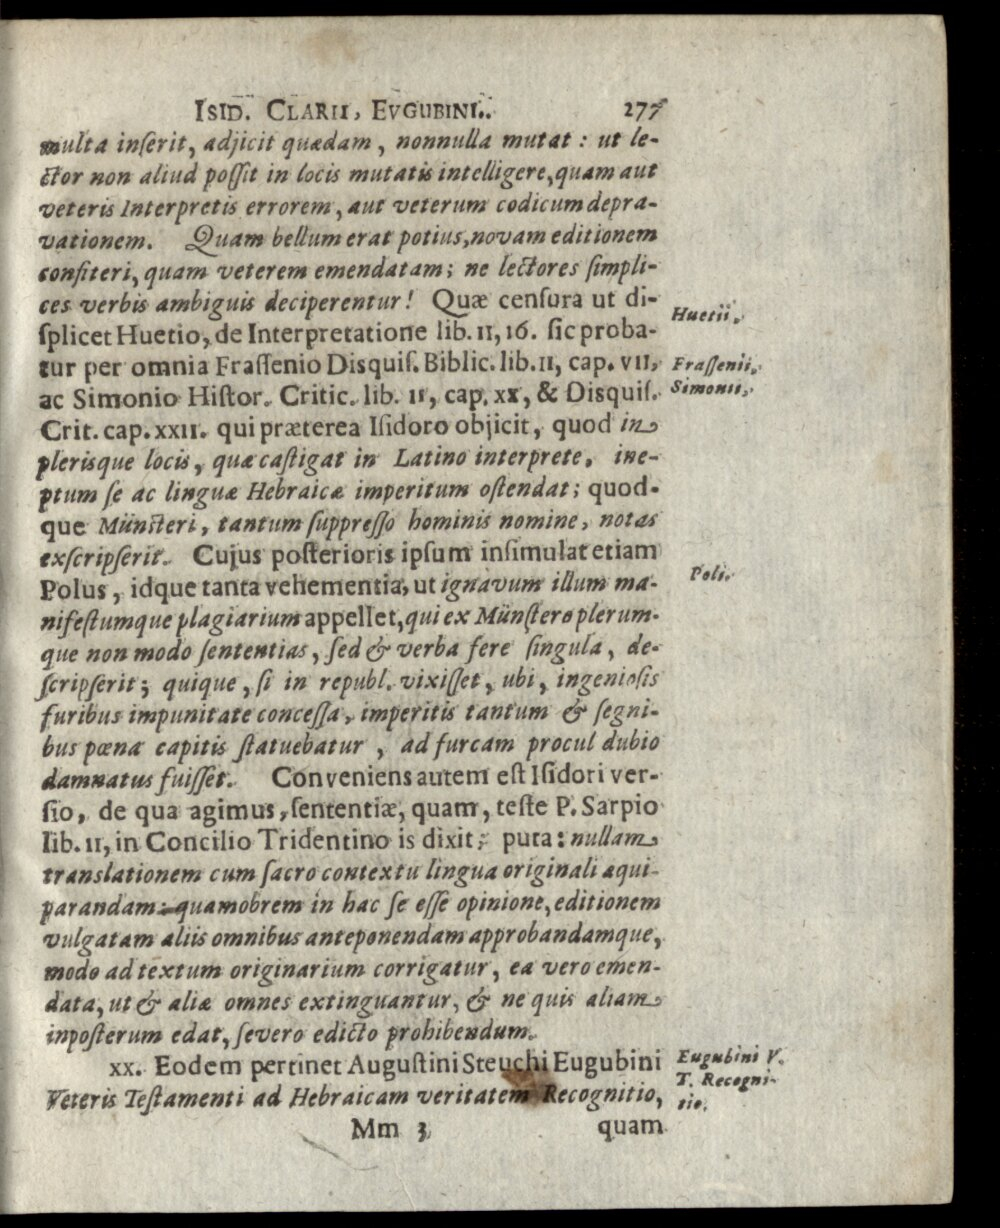 ISID. CLARII, EVGUBINI.. 277
multa inſerit, adjicit quædam, nonnulla mutat : ut le-
ctor non aliud poſſit in locis mutatis intelligere, quam aut
veteris Interpretis errorem, aut veterum codicum depra-
vationem. Quam bellum erat potius, novam editionem
confiteri, quam veterem emendatam; ne lectores ſimpli-
ces verbis ambiguis deciperentur! Quæ cenſura ut di-
ſplicet Huetio, de Interpretatione lib. II, 16. ſic proba-
Huetii.
tur per omnia Fraſſenio Disquiſ. Biblic. lib. II, cap. VII,
Fraſſenii,
ac Simonio Hiſtor. Critic. lib. II, cap. XX, & Disquiſ.
Simonii,
Crit. cap. XXII. qui præterea Iſidoro objicit, quod in
plerisque locis, quæ caſtigat in Latino interprete, ine-
ptum ſe ac linguæ Hebraicæ imperitum oſtendat; quod-
que Münſteri, tantum ſuppreſſo hominis nomine, notas
exſcripſerit. Cujus poſterioris ipſum inſimulat etiam
Polus, idque tanta vehementia, ut ignavum illum ma-
Poli.
nifeſtumque plagiarium appellet, qui ex Münſtero plerum-
que non modo ſententias, ſed & verba fere ſingula, de-
ſcripſerit; quique, ſi in republ. vixiſſet, ubi, ingenioſis
furibus impunitate conceſſa, imperitis tantum & ſegni-
bus pœna capitis ſtatuebatur, ad furcam procul dubio
damnatus fuiſſet. Conveniens autem eſt Iſidori ver-
ſio, de qua agimus, ſententiæ, quam, teſte P. Sarpio
lib. II, in Concilio Tridentino is dixit; puta: nullam
translationem cum ſacro contextu lingua originali æqui-
parandam: quamobrem in hac ſe eſſe opinione, editionem
vulgatam aliis omnibus anteponendam approbandamque,
modo ad textum originarium corrigatur, ea vero emen-
data, ut & aliæ omnes extinguantur, & ne quis aliam
inpoſterum edat, ſevero edicto prohibendum.
XX. Eodem pertinet Auguſtini Steuchi Eugubini
Eugubini V.
Veteris Teſtamenti ad Hebraicam veritatem Recognitio,
T. Recogni-
tio.
Mm 3 quam